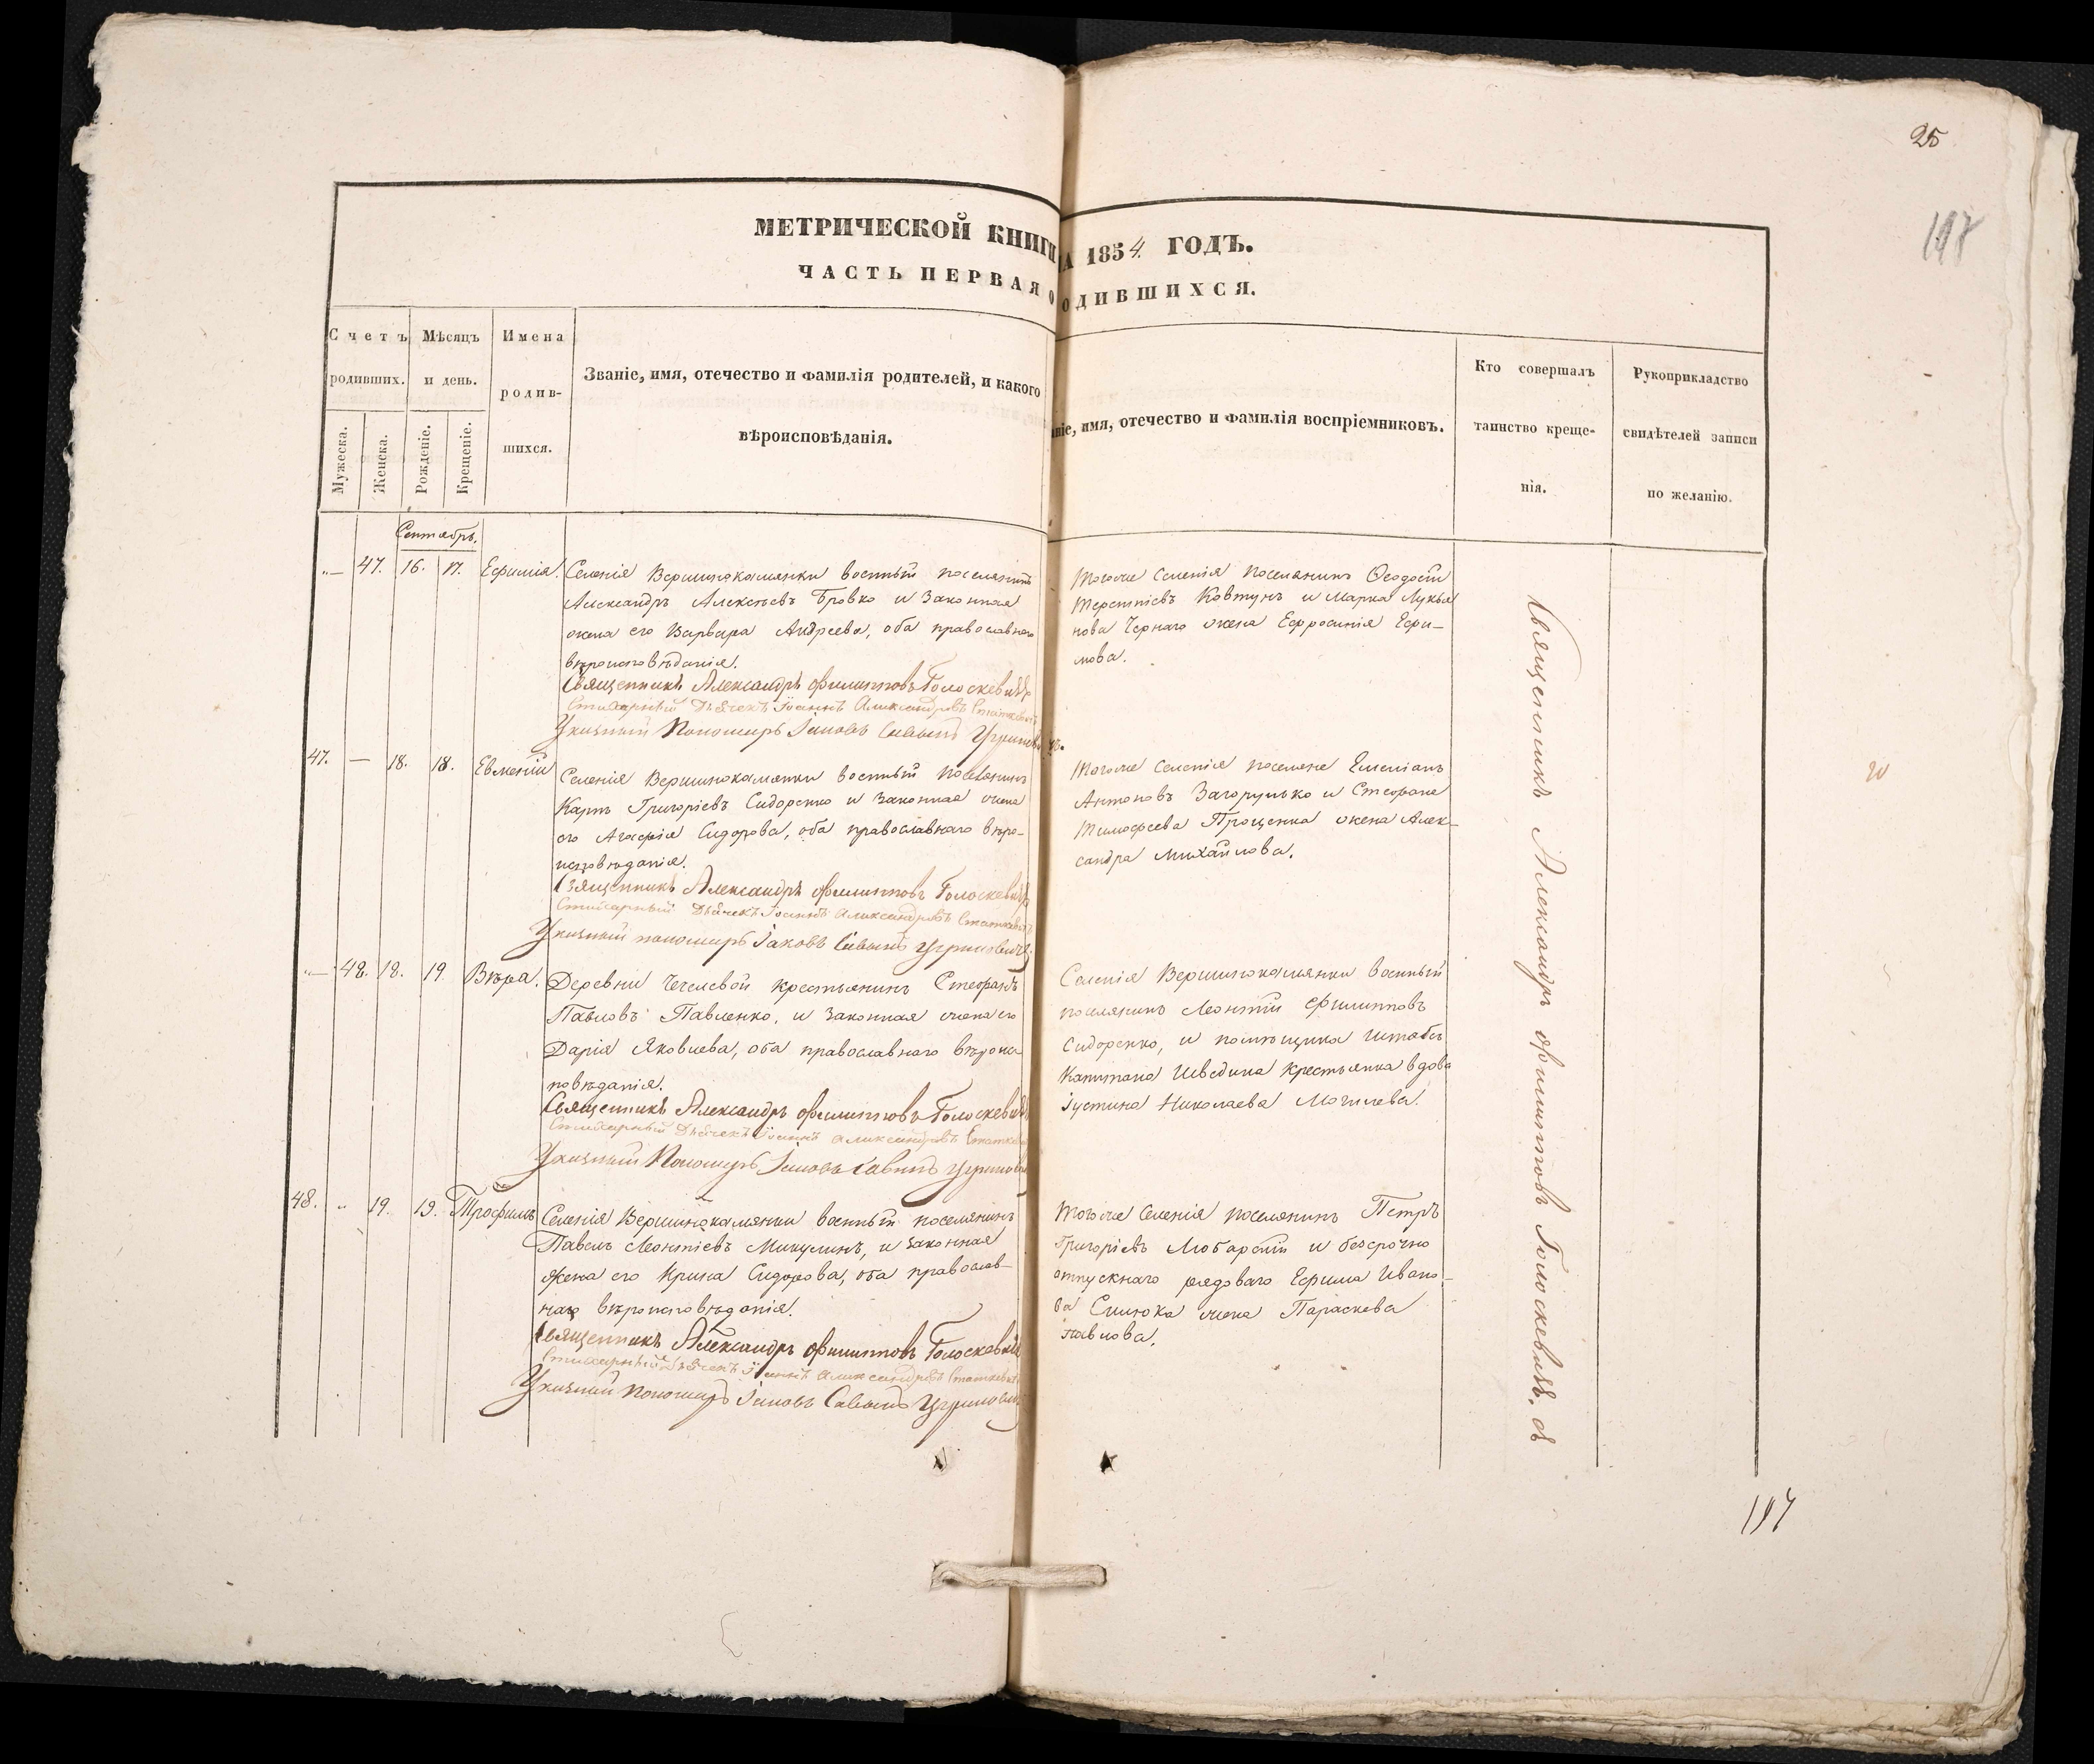 25
197
МЕТРИЧЕСКОЙ КНИГИ
А 1854 ГОДЪ.
ЧАСТЬ ПЕРВАЯ О
ОДИВШИХСЯ.
Счетъ родившихъ.
Мѣсяцъ и день.
Имена родив-
шихся.
Мужеска.
Женска.
Рожденіе.
Крещеніе.
Званіе, имя, отечество и фамилія родителей, и какого
вѣроисповѣданія.
ніе, имя, отечество и фамилія воспріемниковъ.
Кто совершалъ
таинство креще-
нія.
Рукоприкладство
свидѣтелей записи
по желанію.
Сентябрь.
„— 47. 16. 17. Ефимія. Селенія Вершинокамянки военный поселянинъ
Александръ Алексѣевъ Бровко и законная
жена его Варвара Андреева, оба православнаго
вѣроисповѣданія.
Священникъ Александръ Филипповъ Голоскевичъ
Стихарный Дьячекъ Іоаннъ Александровъ
Указный Пономарь Іаковъ Саввинъ Угриновичъ.
Тогоже селенія поселянинъ Ѳеодосій
Терентіевъ Ковтунъ и Марка Лукья
нова Чернаго жена Ефросинія Ефи-
мова.
47. — 18. 18. Евменій Селенія Вершинокамянки военный поселянинъ
Карпъ Григоріевъ Сидоренко и законная жена
его Агафія Сидорова, оба православнаго вѣро-
исповѣданія.
Священникъ Александръ Филипповъ Голоскевичъ
Стихарный Дьячекъ Іоаннъ Александровъ
Указный пономарь Іаковъ Саввинъ Угриновичъ.
Тогоже селенія поселяне Емеліанъ
Антоновъ Загорулько и Стефана
Тимофеева Проценка жена Алек-
сандра Михайлова.
„— 48. 18. 19. Вѣра. Деревни Чечелевой крестьянинъ Стефанъ
Павловъ Павленко, и законная жена его
Дарія Яковлева, оба православнаго вѣроис
повѣданія.
Священникъ Александръ Филипповъ Голоскевичъ
Стихарный Дьячекъ Іоаннъ Александровъ
Указный Пономарь Іаковъ Саввинъ Угринови
Селенія Вершинокамянки военный
поселянинъ Леонтій Филипповъ
Сидоренко, и помѣщика Штабсъ
Капитана Шведина крестьянка вдова
Іустина Николаева Могилева.
48. „ 19. 19. Трофимъ Селенія Вершинокамянки военный поселянинъ
Павелъ Леонтіевъ Микулинъ, и законная
жена его Ирина Сидорова, оба православ-
наго вѣроисповѣданія.
Священникъ Александръ Филипповъ Голоскевичъ
Стихарный Дьячекъ Іоаннъ Александровъ
Указный Пономарь Іаковъ Саввинъ Угриновичъ
Тогоже селенія поселянинъ Петръ
Григоріевъ Любарскій и безсрочно
отпускнаго рядоваго Ефима Ивано-
ва жена Параскева
Павлова.
Священникъ Александръ Филипповъ Голоскевичъ. съ
197